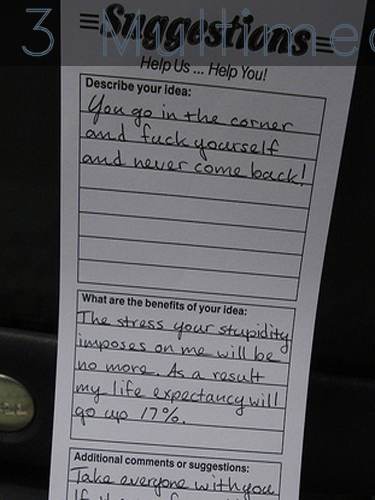 3 Multimed
Suggestions
Help Us ... Help You!
Describe your idea:
You go in the corner
and fuck yourself
and never come back!
What are the benefits of your idea:
The stress your stupidity
imposes on me will be
no more. As a result
my life expectancy will
go up 17%.
Additional comments or suggestions:
Take everyone with you